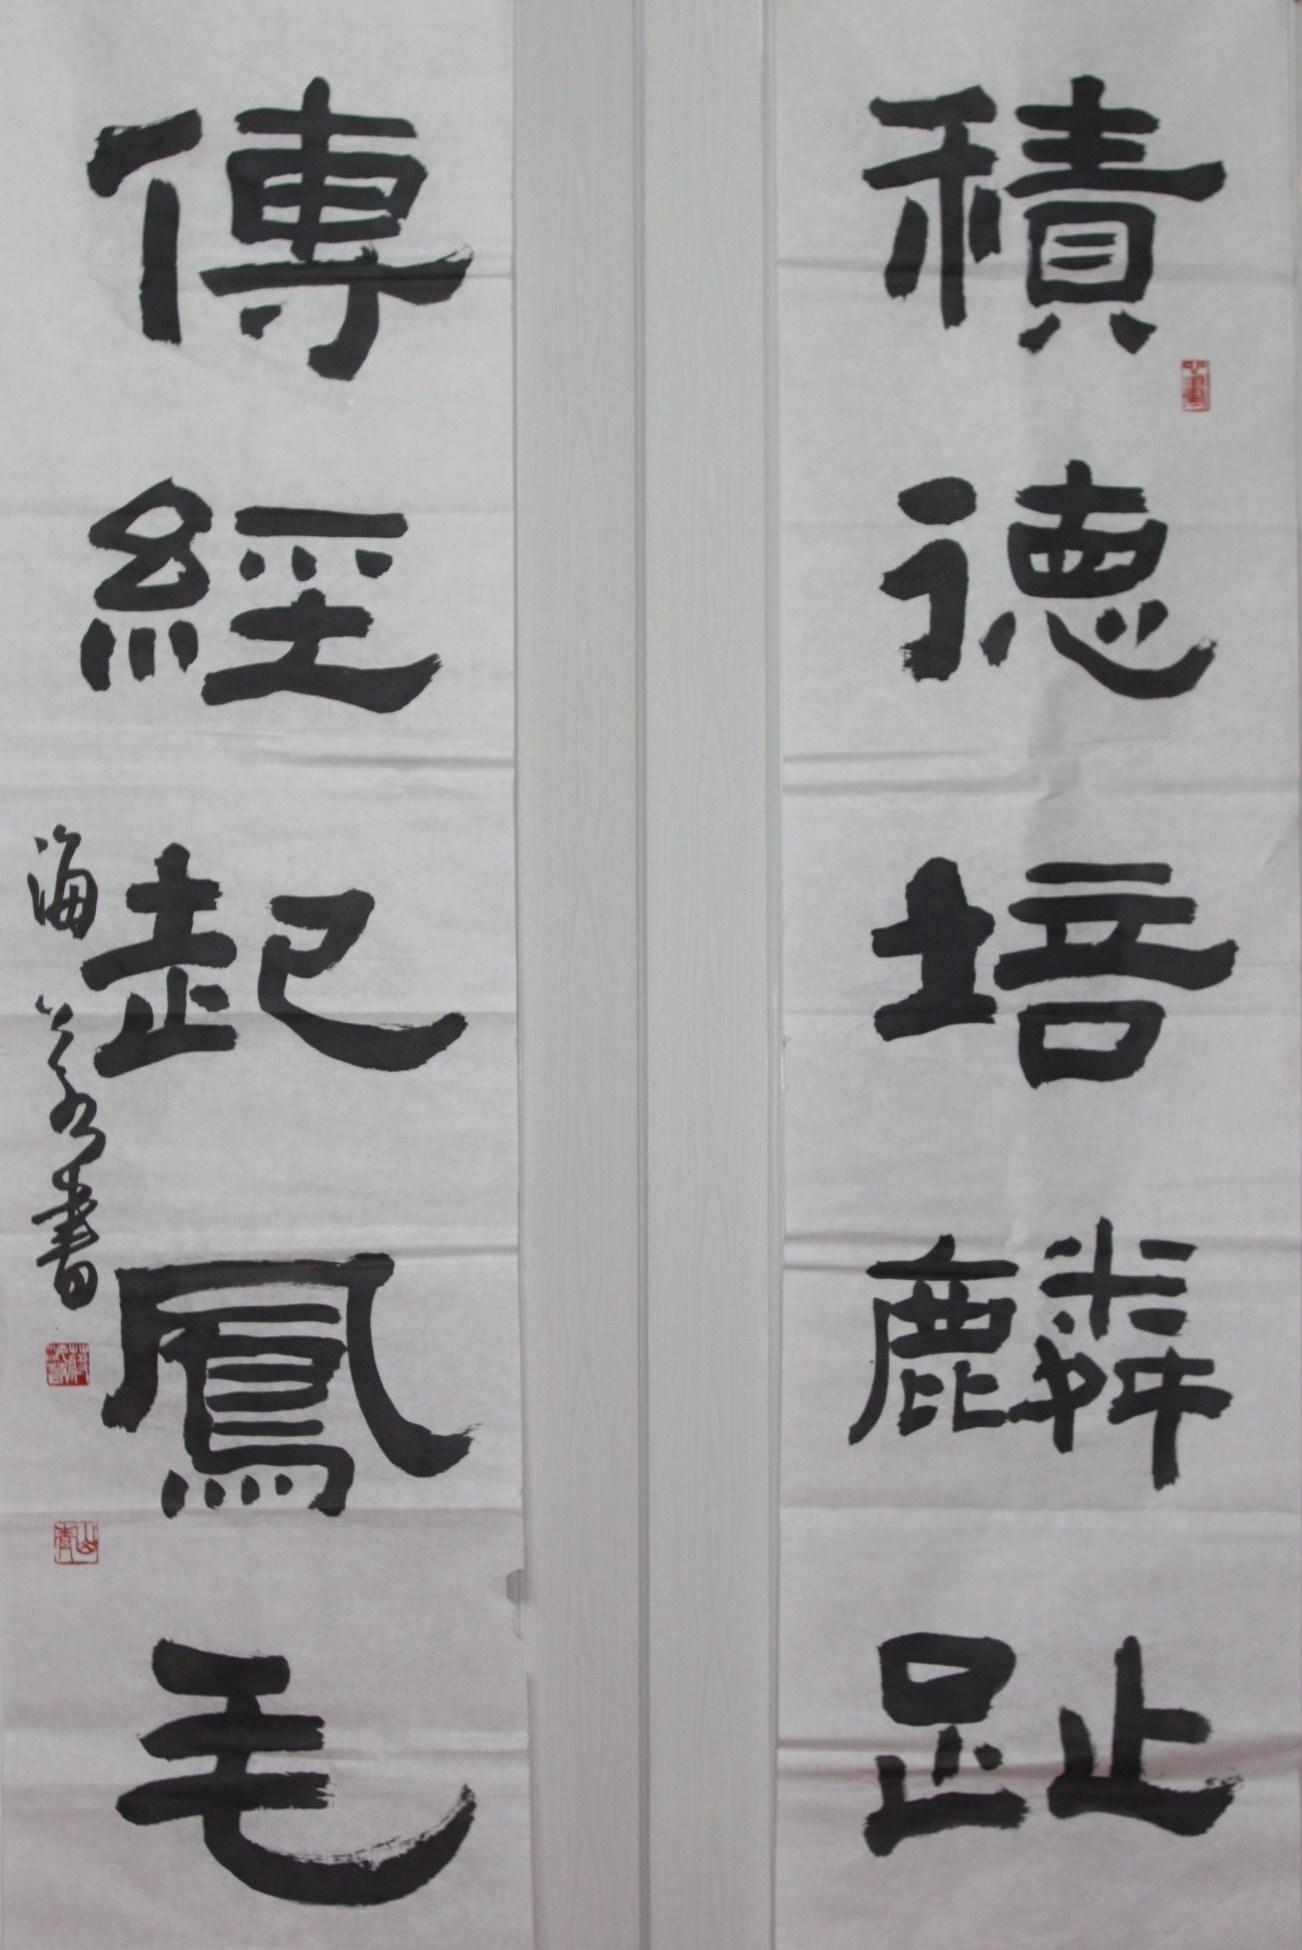 積德培麟趾
傳經起鳳毛
海
書